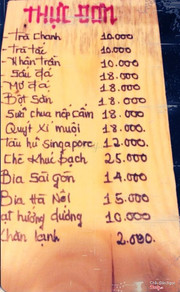 THỰC ĐƠN
Trà chanh 10.000
Trà tắc 10.000
Nhân Trần 10.000
Sấu đá 18.000
Mơ đá 18.000
Bột sắn 18.000
Sữa chua nếp cẩm 18.000
Quýt xí muội 18.000
Tàu hũ Singapore 12.000
Chè Khúc Bạch 25.000
Bia Sài Gòn 14.000
Bia Hà Nội 15.000
ạt hướng dương 10.000
Khăn lạnh 2.000.